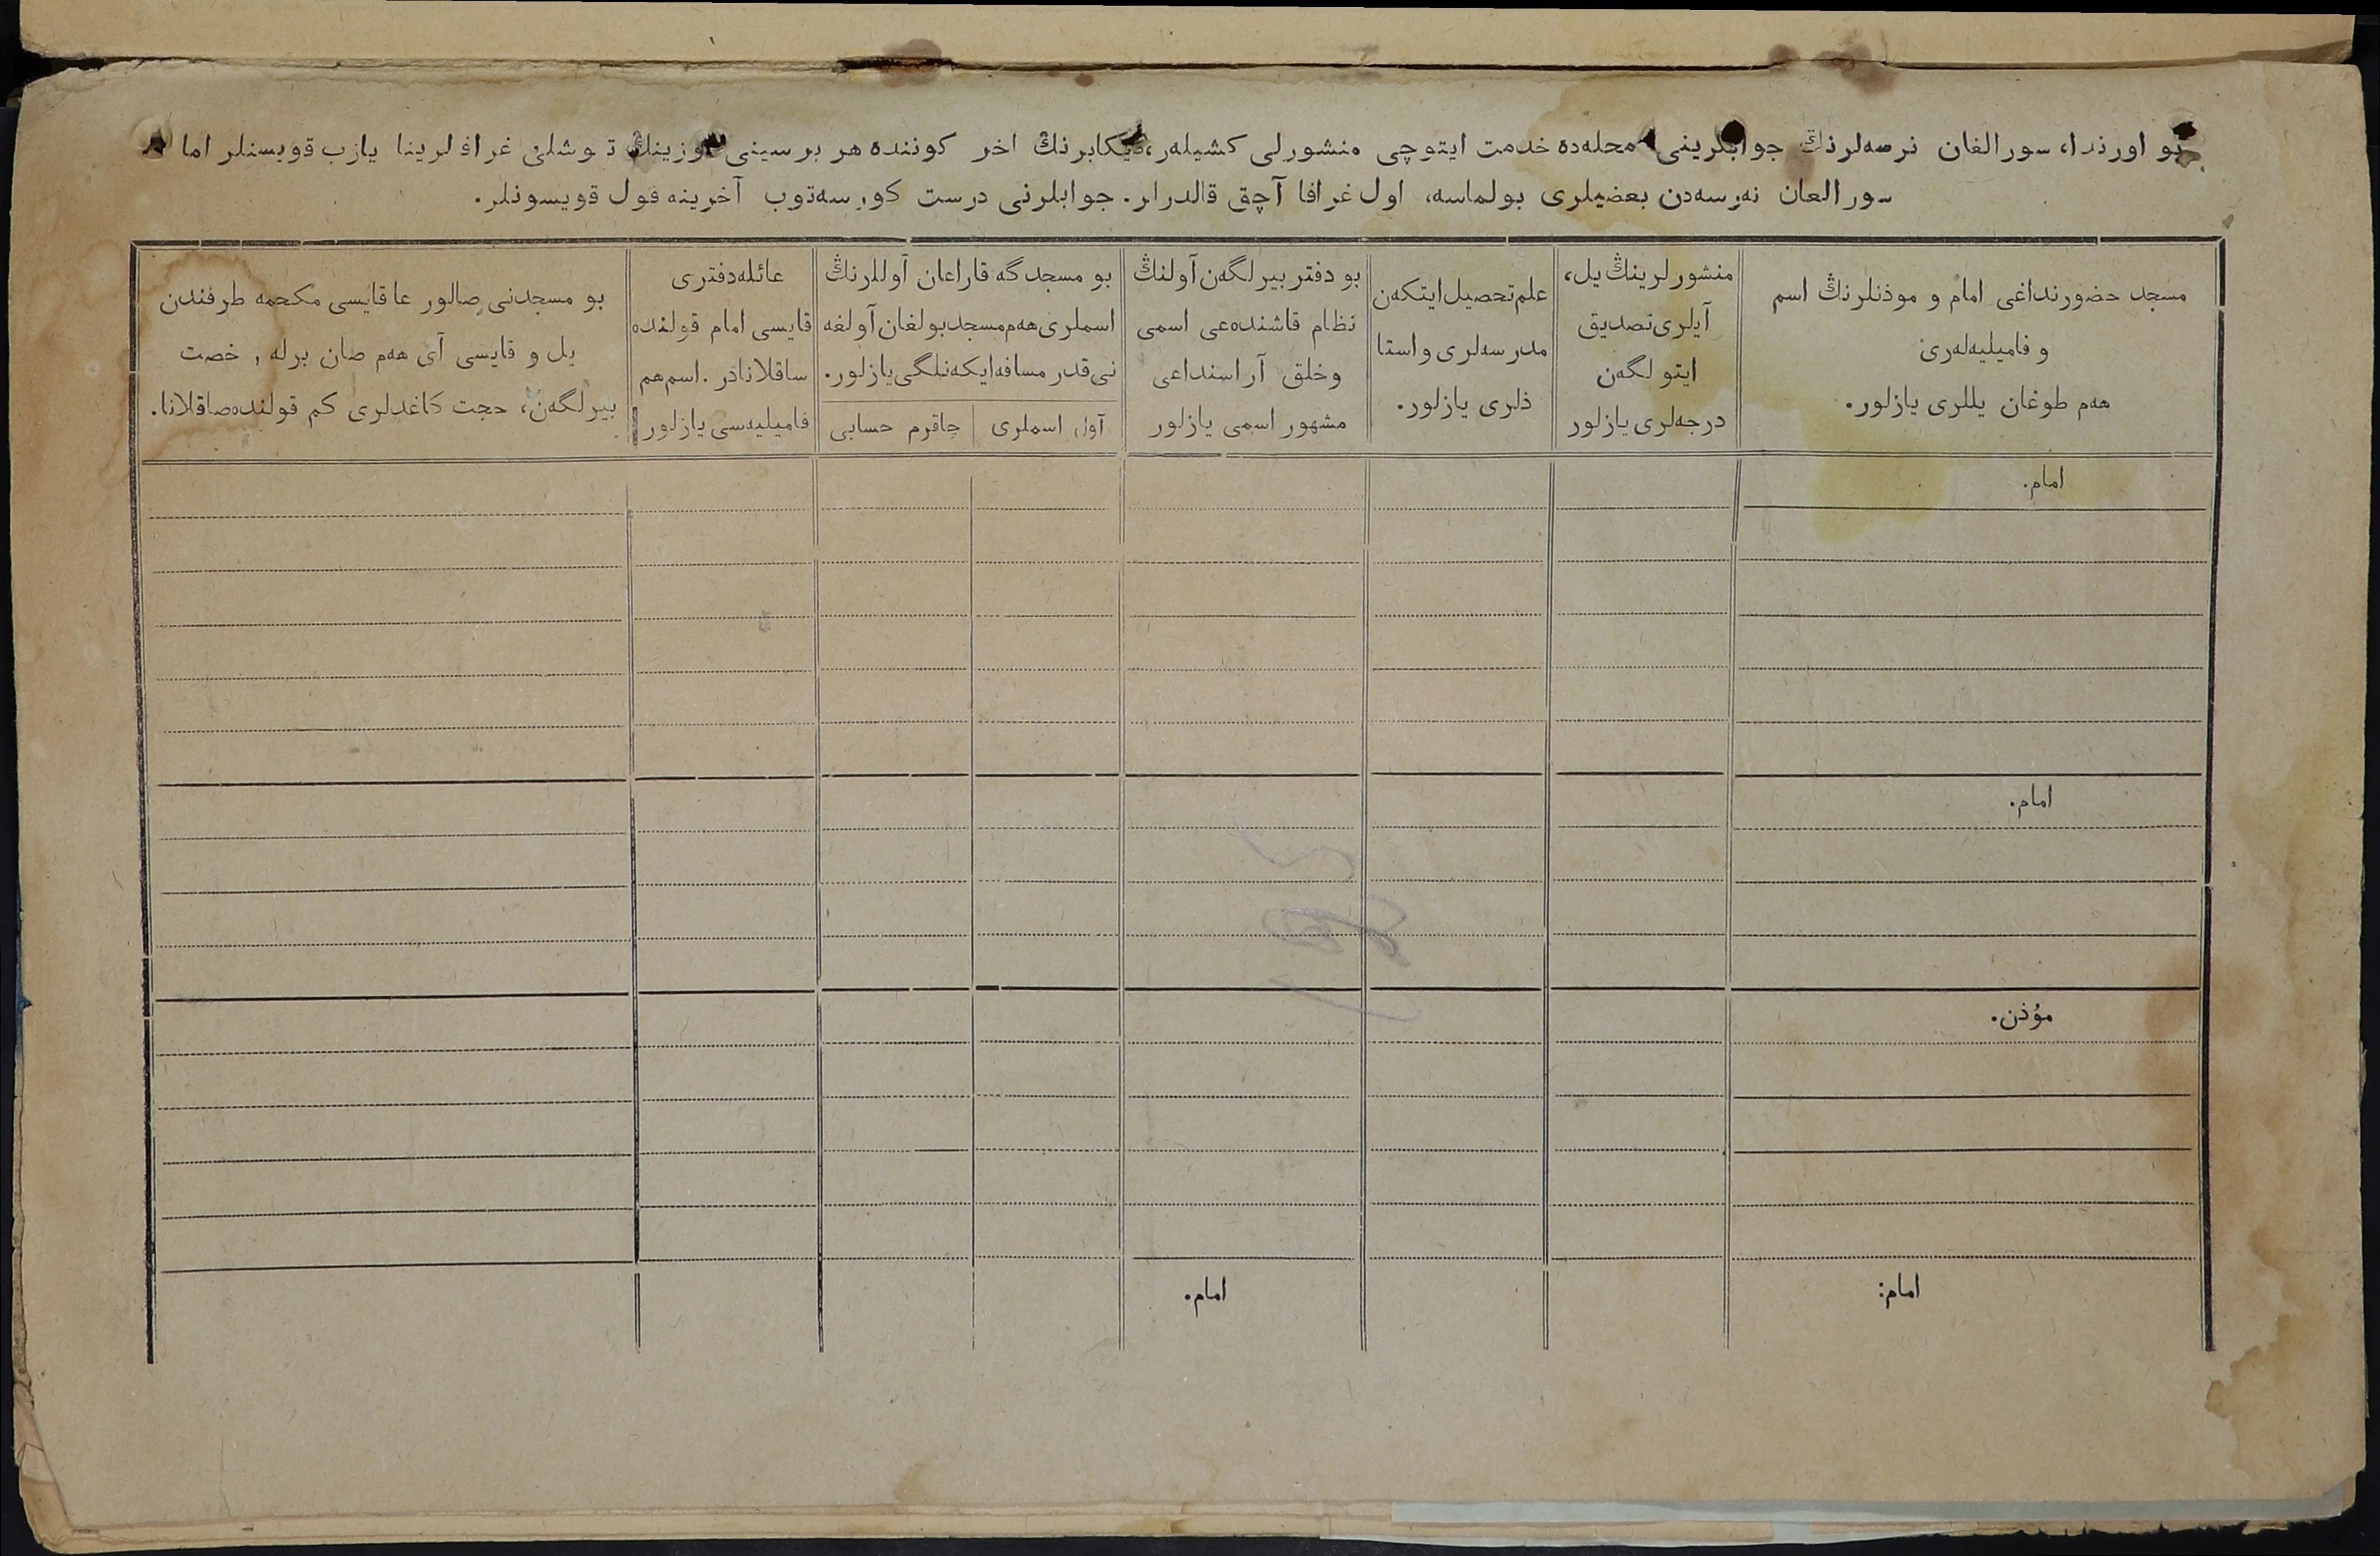 بو اورندا، سورالغان نرسه‌لرنڭ جوابلرینی محله‌ده خدمت ایتوچی منشورلی کشیلەر، دیکابرنڭ اخر کوننده هر برسینی اوزینڭ توشلی غرافلرینا یازب قویسنلر اما
سورالعان نەرسەدن بعضیلری بولماسه، اول غرافا آچق قالدرلر. جوابلرنی درست کورسەتوب آخرینه قول قویسونلر.
مسجد حضورنداغی امام و موذنلرنڭ اسم
و فامیلیەلەری
هەم طوغان یللری یازلور.
منشورلرینڭ یل،
آیلری تصدیق
ایتولگەن
درجەلری یازلور
علم تحصیل ایتکەن
مدرسەلری و استا
ذلری یازلور.
بو دفتر بیرلگەن آولنڭ
نظام قاشنده‌عی اسمی
وخلق آراسنداعی
مشهور اسمی یازلور
بو مسجدگه قاراعان آوللرنڭ
اسملری هەم مسجد بولغان آولغه
نی قدر مسافه ایکەنلگی یازلور.
آول اسملری
چاقرم حسابی
عائله دفتری
قایسی امام قولنده
ساقلانادر. اسم هم
فامیلیەسی یازلور
بو مسجدنی صالور عا قایسی مکحمه طرفندن
یل و قایسی آی هەم صان برله , خصت
بیرلگەن، حجت کاغدلری کم قولنده صاقلانا.
امام.
امام.
مؤذن.
امام:
امام.